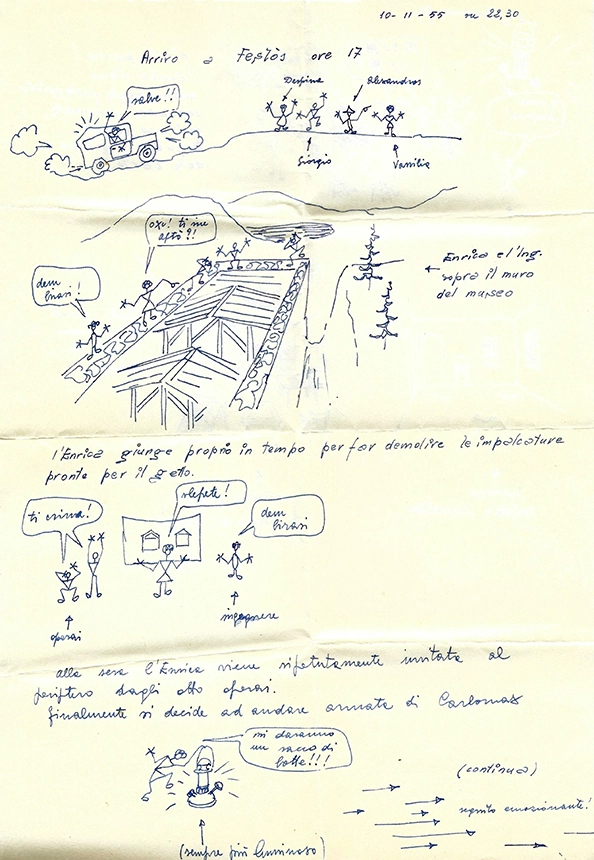 10-11-55 ore 22,30
Arrivo a Festòs ore 17
salve!!
Despina
Alexandros
Giorgio
Vassilis
oxu! ti ine
aftò?!
dem
birasi!
Enrica e l'Ing.
sopra il muro
del museo
l'Enrica giunge proprio in tempo per far demolire le impalcature
pronte per il getto.
ti crima!
vlepete!
dem
birasi
operai
ingegnere
alla sera l'Enrica viene ripetutamente invitata al
periptero dagli otto operai.
finalmente si decide ad andare armata di Carlomax
mi daranno
un sacco di
botte!!!
(continua)
seguito emozionante!
(sempre più luminoso)